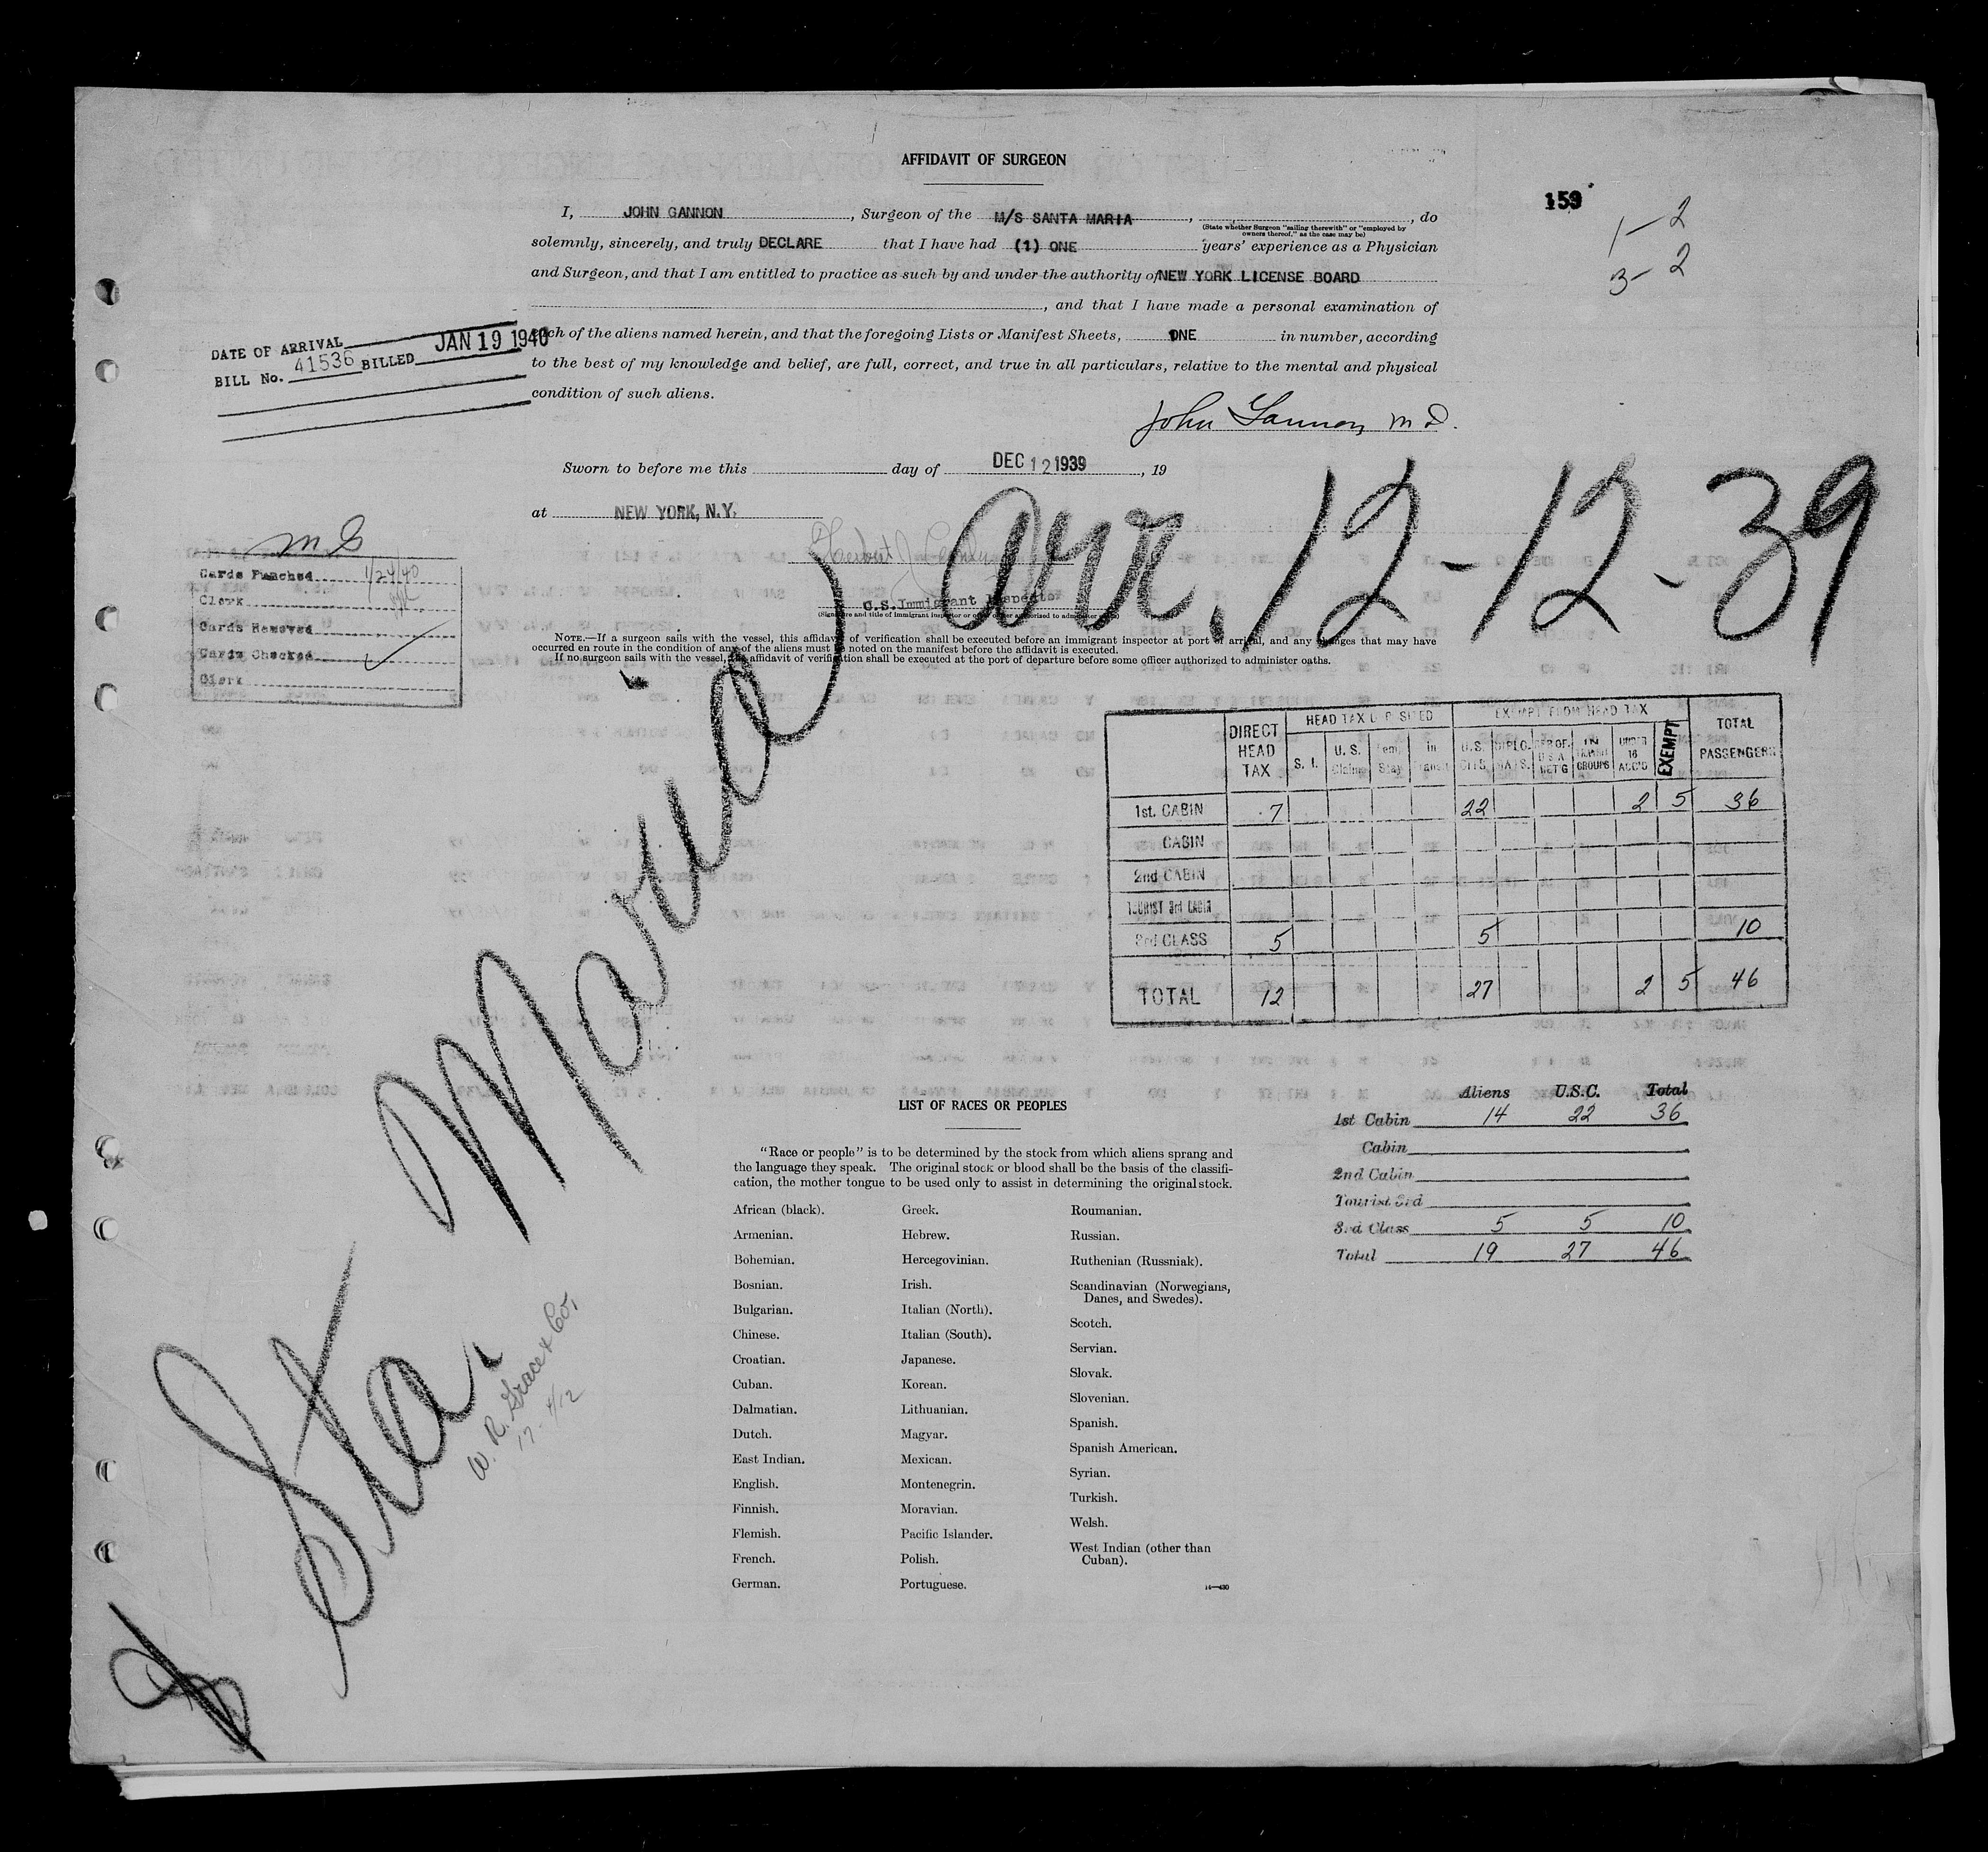 AFFIDAVIT OF SURGEON
159
1-2
3-2
I, JOHN GANNON, Surgeon of the M/S SANTA MARIA, , do
(State whether Surgeon "sailing therewith" or "employed by
owners thereof," as the case may be)
solemnly, sincerely, and truly DECLARE that I have had (1) ONE years' experience as a Physician
and Surgeon, and that I am entitled to practice as such by and under the authority of NEW YORK LICENSE BOARD
, and that I have made a personal examination of
each of the aliens named herein, and that the foregoing Lists or Manifest Sheets, ONE in number, according
to the best of my knowledge and belief, are full, correct, and true in all particulars, relative to the mental and physical
condition of such aliens.
DATE OF ARRIVAL
BILL No. 41536 BILLED JAN 19 1940
John Gannon, M.D.
Sworn to before me this day of DEC 12 1939, 19
at NEW YORK, N.Y.
arr. 12-12-39
U.S. Immigrant Inspector
NOTE.—If a surgeon sails with the vessel, this affidavit of verification shall be executed before an immigrant inspector at port of arrival, and any changes that may have
occurred en route in the condition of any of the aliens must be noted on the manifest before the affidavit is executed.
If no surgeon sails with the vessel, the affidavit of verification shall be executed at the port of departure before some officer authorized to administer oaths.
Cards Punched 1/24/40
Clerk
Cards Removed
Cards Checked ✓
Clerk
DIRECT HEAD TAX
HEAD TAX DEPOSITED
S. I.
U. S. Claims
Temp. Stay
In Transit
EXEMPT FROM HEAD TAX
U.S. CITS.
DIPLOMATS.
UNDER 16 ACC'G
EXEMPT
TOTAL PASSENGERS
1st. CABIN 7 22 2 5 36
CABIN
2nd CABIN
TOURIST 3rd CABIN
3rd CLASS 5 5 10
TOTAL 12 27 2 5 46
Sta. Maria
W. R. Grace & Co.
17-4/12
Aliens U.S.C. Total
1st Cabin 14 22 36
Cabin
2nd Cabin
Tourist 3rd
3rd Class 5 5 10
Total 19 27 46
LIST OF RACES OR PEOPLES
"Race or people" is to be determined by the stock from which aliens sprang and
the language they speak. The original stock or blood shall be the basis of the classifi-
cation, the mother tongue to be used only to assist in determining the original stock.
African (black).
Armenian.
Bohemian.
Bosnian.
Bulgarian.
Chinese.
Croatian.
Cuban.
Dalmatian.
Dutch.
East Indian.
English.
Finnish.
Flemish.
French.
German.
Greek.
Hebrew.
Hercegovinian.
Irish.
Italian (North).
Italian (South).
Japanese.
Korean.
Lithuanian.
Magyar.
Mexican.
Montenegrin.
Moravian.
Pacific Islander.
Polish.
Portuguese.
Roumanian.
Russian.
Ruthenian (Russniak).
Scandinavian (Norwegians,
Danes, and Swedes).
Scotch.
Servian.
Slovak.
Slovenian.
Spanish.
Spanish American.
Syrian.
Turkish.
Welsh.
West Indian (other than
Cuban).
14—430